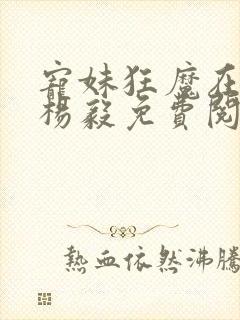 寵妹狂魔在
楊毅免費閱
熱血依然沸騰